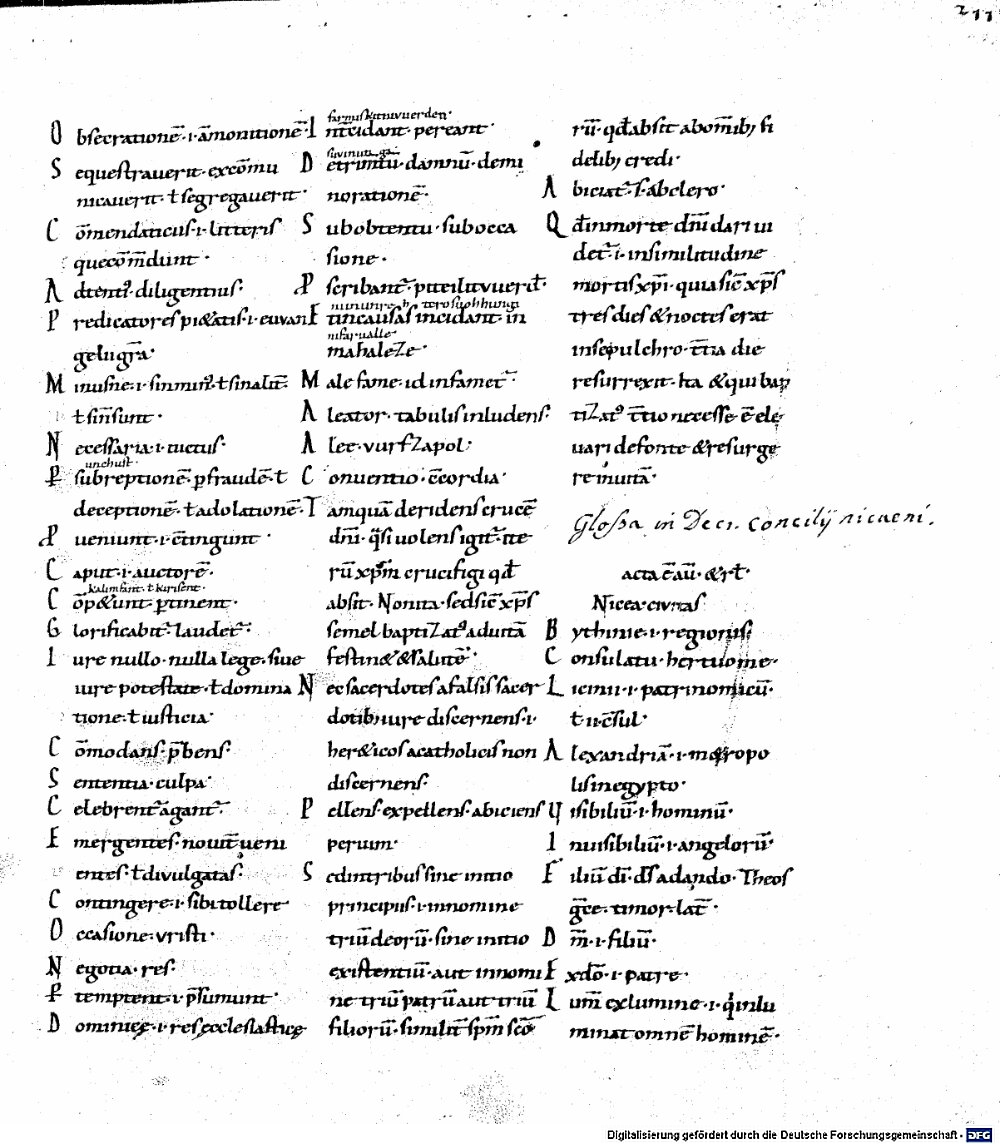 211
Obsecrationē·i·āmonitionē·
Sequestraverit·excōmu
nicaverit·ł segregaverit·
Cōmendaticus·i·litteris
que cōmdunt·
Adtenti᷒·diligentius·
Predicatores pi&atis·i·euvan
gelii grā·
Minusne·i·sinminꝰ·ł sinaliť
ł sin̄sunt·
Necessaria·i·uictus·
unchust·
Psubreptionē·p fraudē·ł
deceptionē·ł adolationē·
Pueniunt·i·c̄tingunt·
Caput·i·auctorē·
kalimfant·ł kirisent·
Cōp&unt·ptinent·
Glorificabit᷒·laudet᷒·
Iure nullo·nulla lege·siue
iure potestate·ł domina
tione·ł iusticia·
Cōmodans·p̄bens·
Sententia·culpa·
Celebrent᷒ agant᷒·
Emergentes·nouit᷒ ueni
entes·ł divulgatas·
Contingere·i·sibi tollere
Occasione·vristi·
Negotia·res·
Ptemptent·i·p̄sumunt·
Dominice·i·res ęcclesiasticę
farnuskitnvuerden·
Intcidant·pereant·
Detrimtū·damnū·demi
norationē·
Sub obtentu·sub occa
sione·
Pscribant᷒·
Et in causas incidant·in
nifarualle
mahaleze·
Male fame·id infamet᷒·
Aleator·tabulis inludens·
Alee·vurfzapol·
Conuentio·c̄cordia·
Tamquā deridens crucē
dn̄i·q̄si uolens igit᷒·ite
rū·xp̄m crucifigi qđ
absit·Non ita·sed sic̄ xp̄s
semel baptizatꝰ ad uitā
festin& & salutē·
Nec sacerdotes a falsis sacer
dotib; iure discernens·i·
her&icos a catholicis non
discernens·
Pellens expellens abiciens
peruim·
Sed in tribus sine initio
principiis·i·in nomine
triū deorū·sine initio
existentiū·aut in nomi
ne triū patrū aut triū
filiorū·similiť sp̄m scō
rū·qđ absit abomīb; fi
delib; credi·
Abiciat᷒·s·abclero·
Qđ in morte dn̄i dari ui
det᷒·i·in similitudine
mortis xp̄i·quia sic̄ xp̄s
tres dies & noctes erat
in sepulchro·t̄tia die
resurrexit·Ita & qui bap
tizatꝰ t̄tio necesse ē ele
uari de fonte & resurge
re in uitā·
Glossa in Decr. Concilij nicaeni.
acta c̄aū·&rł·
Nicea·civitas
Bythinie·i·regionis·
Consulatu·hertuome·
Licinii·i·patrinomicū·
ł ii·c̄sul·
Alexandriā·i·m&ropo
lis in egypto·
Uisibiliū·i·hominū·
Inuisibiliū·i·angelorū·
Filiū di᷒·ds̄ ad ando·Theos
gc̄e·timor·lat᷒·
Dm̄·i·filiū·
Ex dō·i·patre·
Lum̄ ex lumine·i·qi inlu
minat omnē hominē·
Digitalisierung gefördert durch die Deutsche Forschungsgemeinschaft - DFG